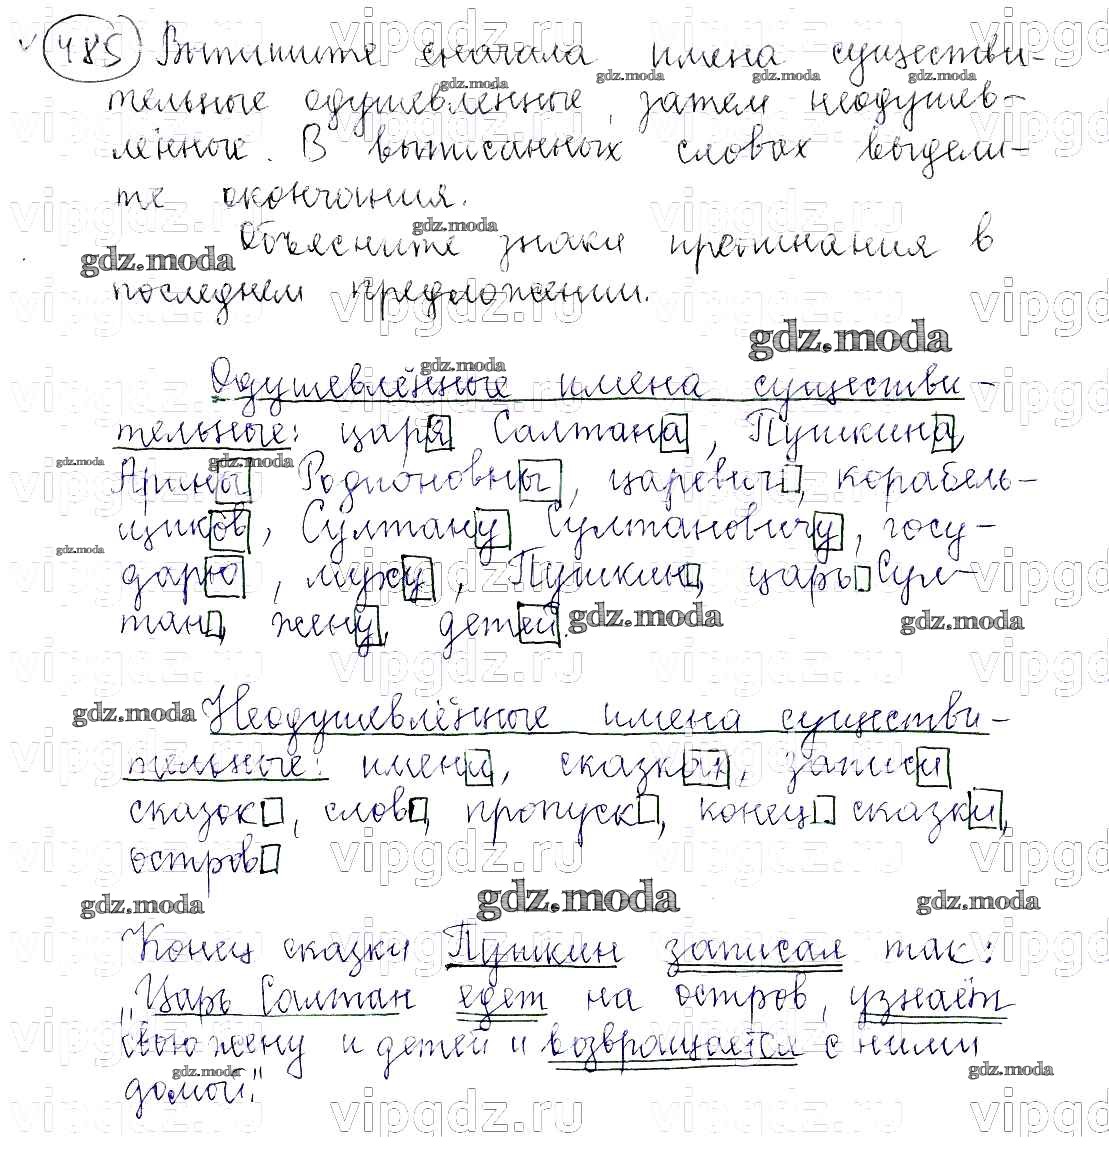 485 Выпишите сначала имена существи-
тельные одушевлённые, затем неодушев-
лённые. В выписанных словах выдели-
те окончания.
Объясните знаки препинания в
последнем предложении.
Одушевлённые имена существи-
тельные: царя Салтана, Пушкина,
Арины Родионовны, царевич, корабель-
щиков, Султану Султановичу, госу-
дарю, мужу, Пушкин, царь Сул-
тан, жену, детей.
Неодушевлённые имена существи-
тельные: имени, сказках, записи
сказок, слов, пропуск, конец сказки,
остров
Конец сказки Пушкин записал так:
„Царь Салтан едет на остров, узнаёт
свою жену и детей и возвращается с ними
домой."
gdz.moda
vipgdz.ru